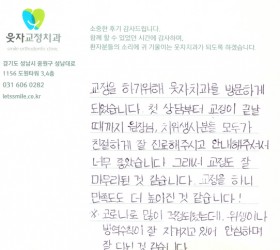 웃자교정치과
경기도 성남시 중원구 성남대로
1156 도원타워 3,4층
031 606 0282
letsmile.co.kr
소중한 후기 감사드립니다.
함께 할 수 있었던 시간에 감사하며,
환자분들의 소리에 귀 기울이는 웃자치과가 되도록 하겠습니다.
교정을 하기위해 웃자치과를 방문하게
되었습니다. 첫 상담부터 교정이 끝날
때까지 원장님, 치위생사분들 모두가
친절하게 잘 진료해주시고 안내해주셔서
너무 좋았습니다. 그래서 교정도 잘
마무리된 것 같습니다. 교정을 하니
만족도도 더 높아진 것 같습니다!
※ 코로나로 많이 걱정되었는데, 위생이나
방역수칙이 잘 지켜지고 있어 안심하며
잘 다닌 것 같습니다.